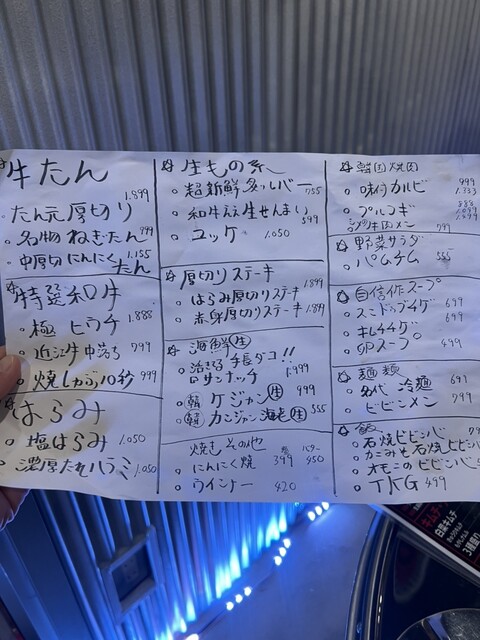 ☆牛たん
・たん元厚切り 1.899
・名物ねぎたん 999
・中厚切にんにくたん 1.155
特選和牛
・極ヒウチ 1.888
・近江牛中落ち 799
・焼しゃぶ10秒 999
はらみ
・塩はらみ 1.050
・濃厚たれハラミ 1.050
☆生もの系
・超新鮮炙りレバー 755
・和牛 生せんまい 599
・ユッケ 1.050
☆厚切りステーキ
・はらみ厚切りステーキ 1.899
・赤身厚切りステーキ 1.899
☆海鮮生
・活きてる手長ダコ!!
サンナッチ 1.999
・韓 ケジャン生 999
・韓 カンジャン海老生 555
焼きその他
・にんにく焼 399 450
・ウインナー 420
☆韓国焼肉
・味付カルビ 999 1.333
・プルコギ
799
☆野菜サラダ
・パムチム 555
☆自信作スープ
・スンドゥブチゲ 699
・キムチチゲ 699
・卵スープ 499
☆麺類
・冷麺 699
・ビビンメン 799
☆飯
・石焼ビビンバ
・カニみそ石焼ビビンバ
・オモニのビビンバ
・TKG 499
白菜キムチ
3種盛り